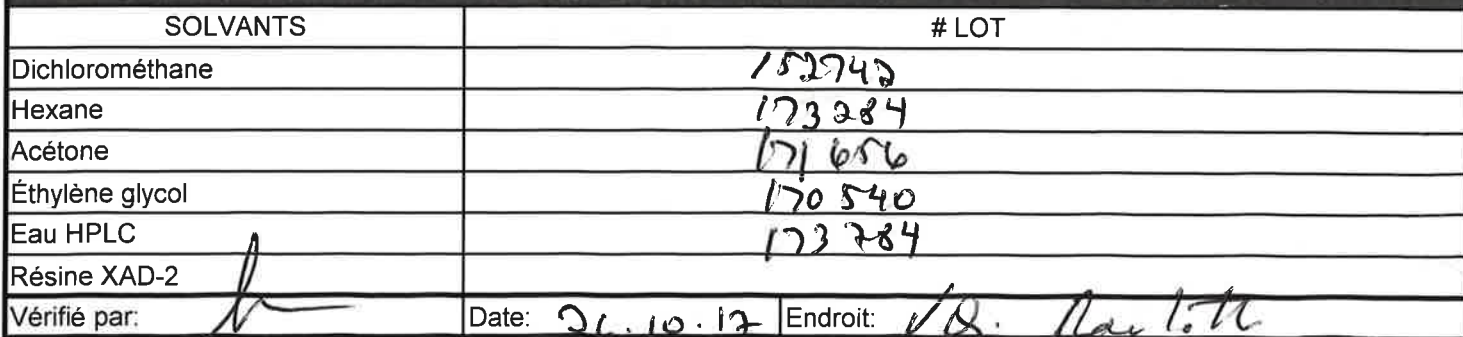 SOLVANTS # LOT
Dichlorométhane 152742
Hexane 173284
Acétone 171 656
Éthylène glycol 170 540
Eau HPLC 173 784
Résine XAD-2
Vérifié par: Date: Endroit: